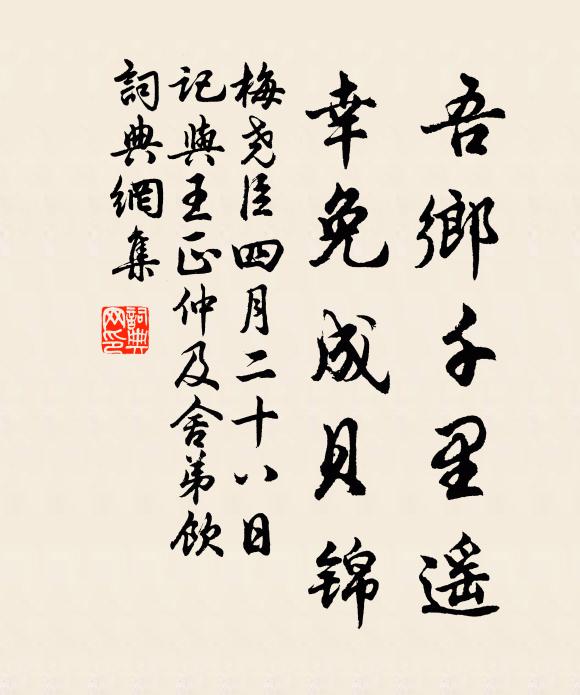 吾鄉千里遥
幸免成貝錦
梅尧臣四月二十八日
記與王正仲及舍弟飲
詞典網集
詞典網印